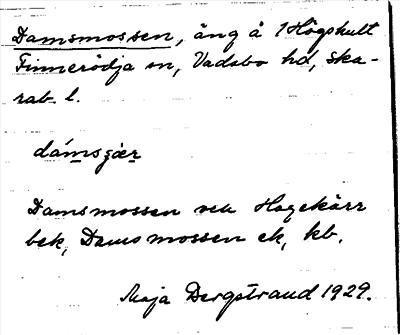 Damsmossen, äng å 1 Högshult
Finnerödja sn, Vadsbo hd, Ska-
rab. l.
dámsjær
Damsmossen Hagekärr
bek, Damsmossen ek, kb.
Maja Bergstrand 1929.